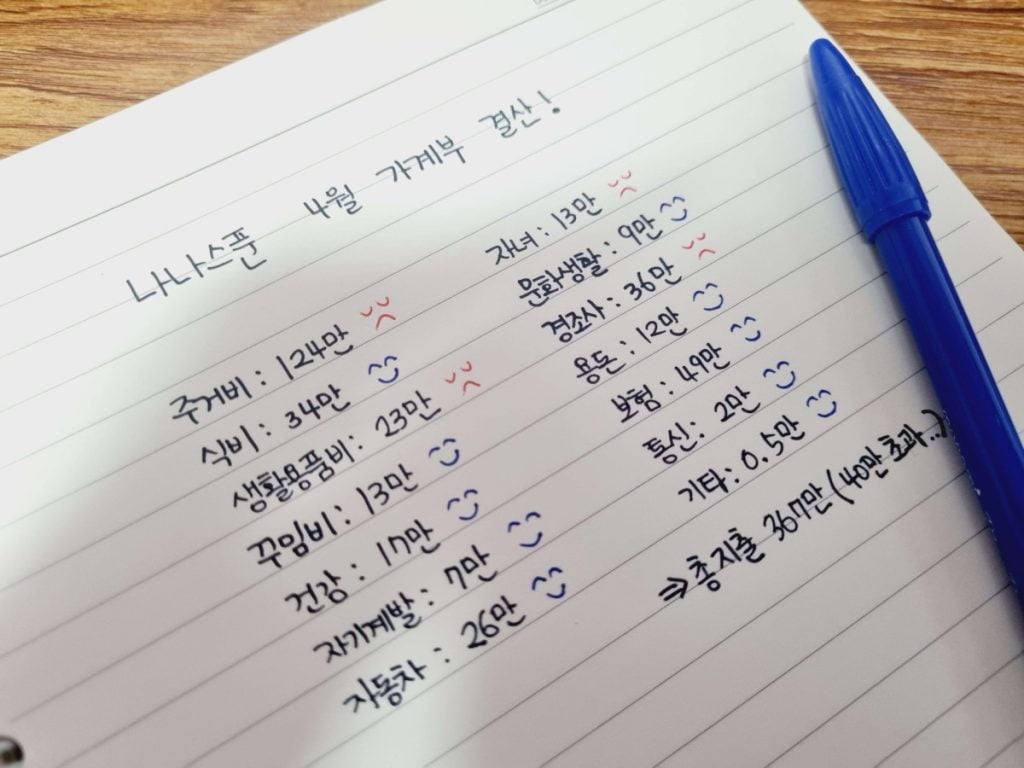 나나스푼 4월 가계부 결산!
주거비 : 124만
식비 : 34만
생활용품비 : 23만
꾸밈비 : 13만
건강 : 17만
자기계발 : 7만
자동차 : 26만
자녀 : 13만
문화생활 : 9만
경조사 : 36만
용돈 : 12만
보험 : 49만
통신 : 2만
기타 : 0.5만
⇒ 총 지출 367만 (40만 초과..)